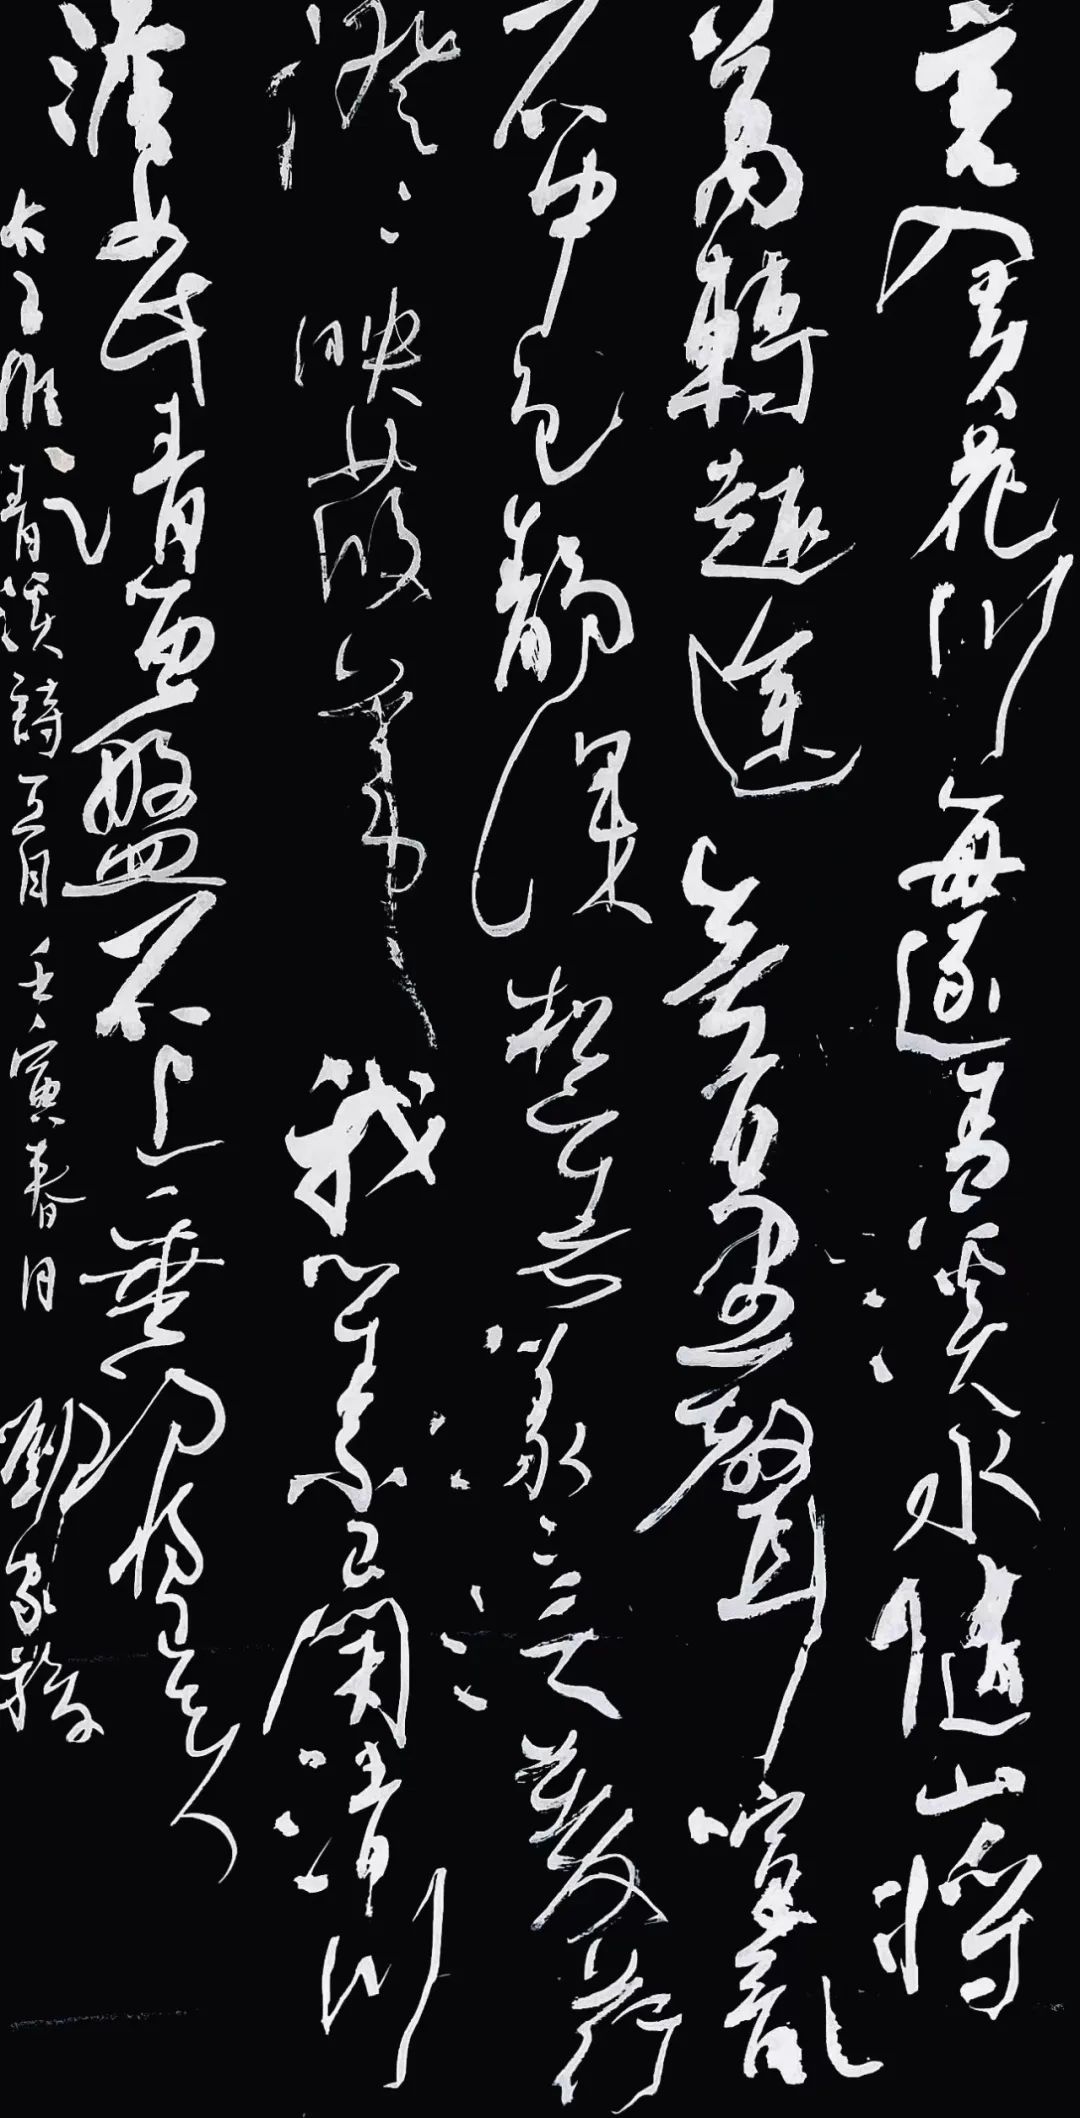 言入黃花川每逐青溪水隨山將
萬轉趣途無百里聲喧亂
石中色靜深松里漾〻泛菱荇
澄〻映葭葦我心素已閑清川
澹如此請留盤石上垂釣將已矣
右王維之青溪詩一首壬寅春月 劉家